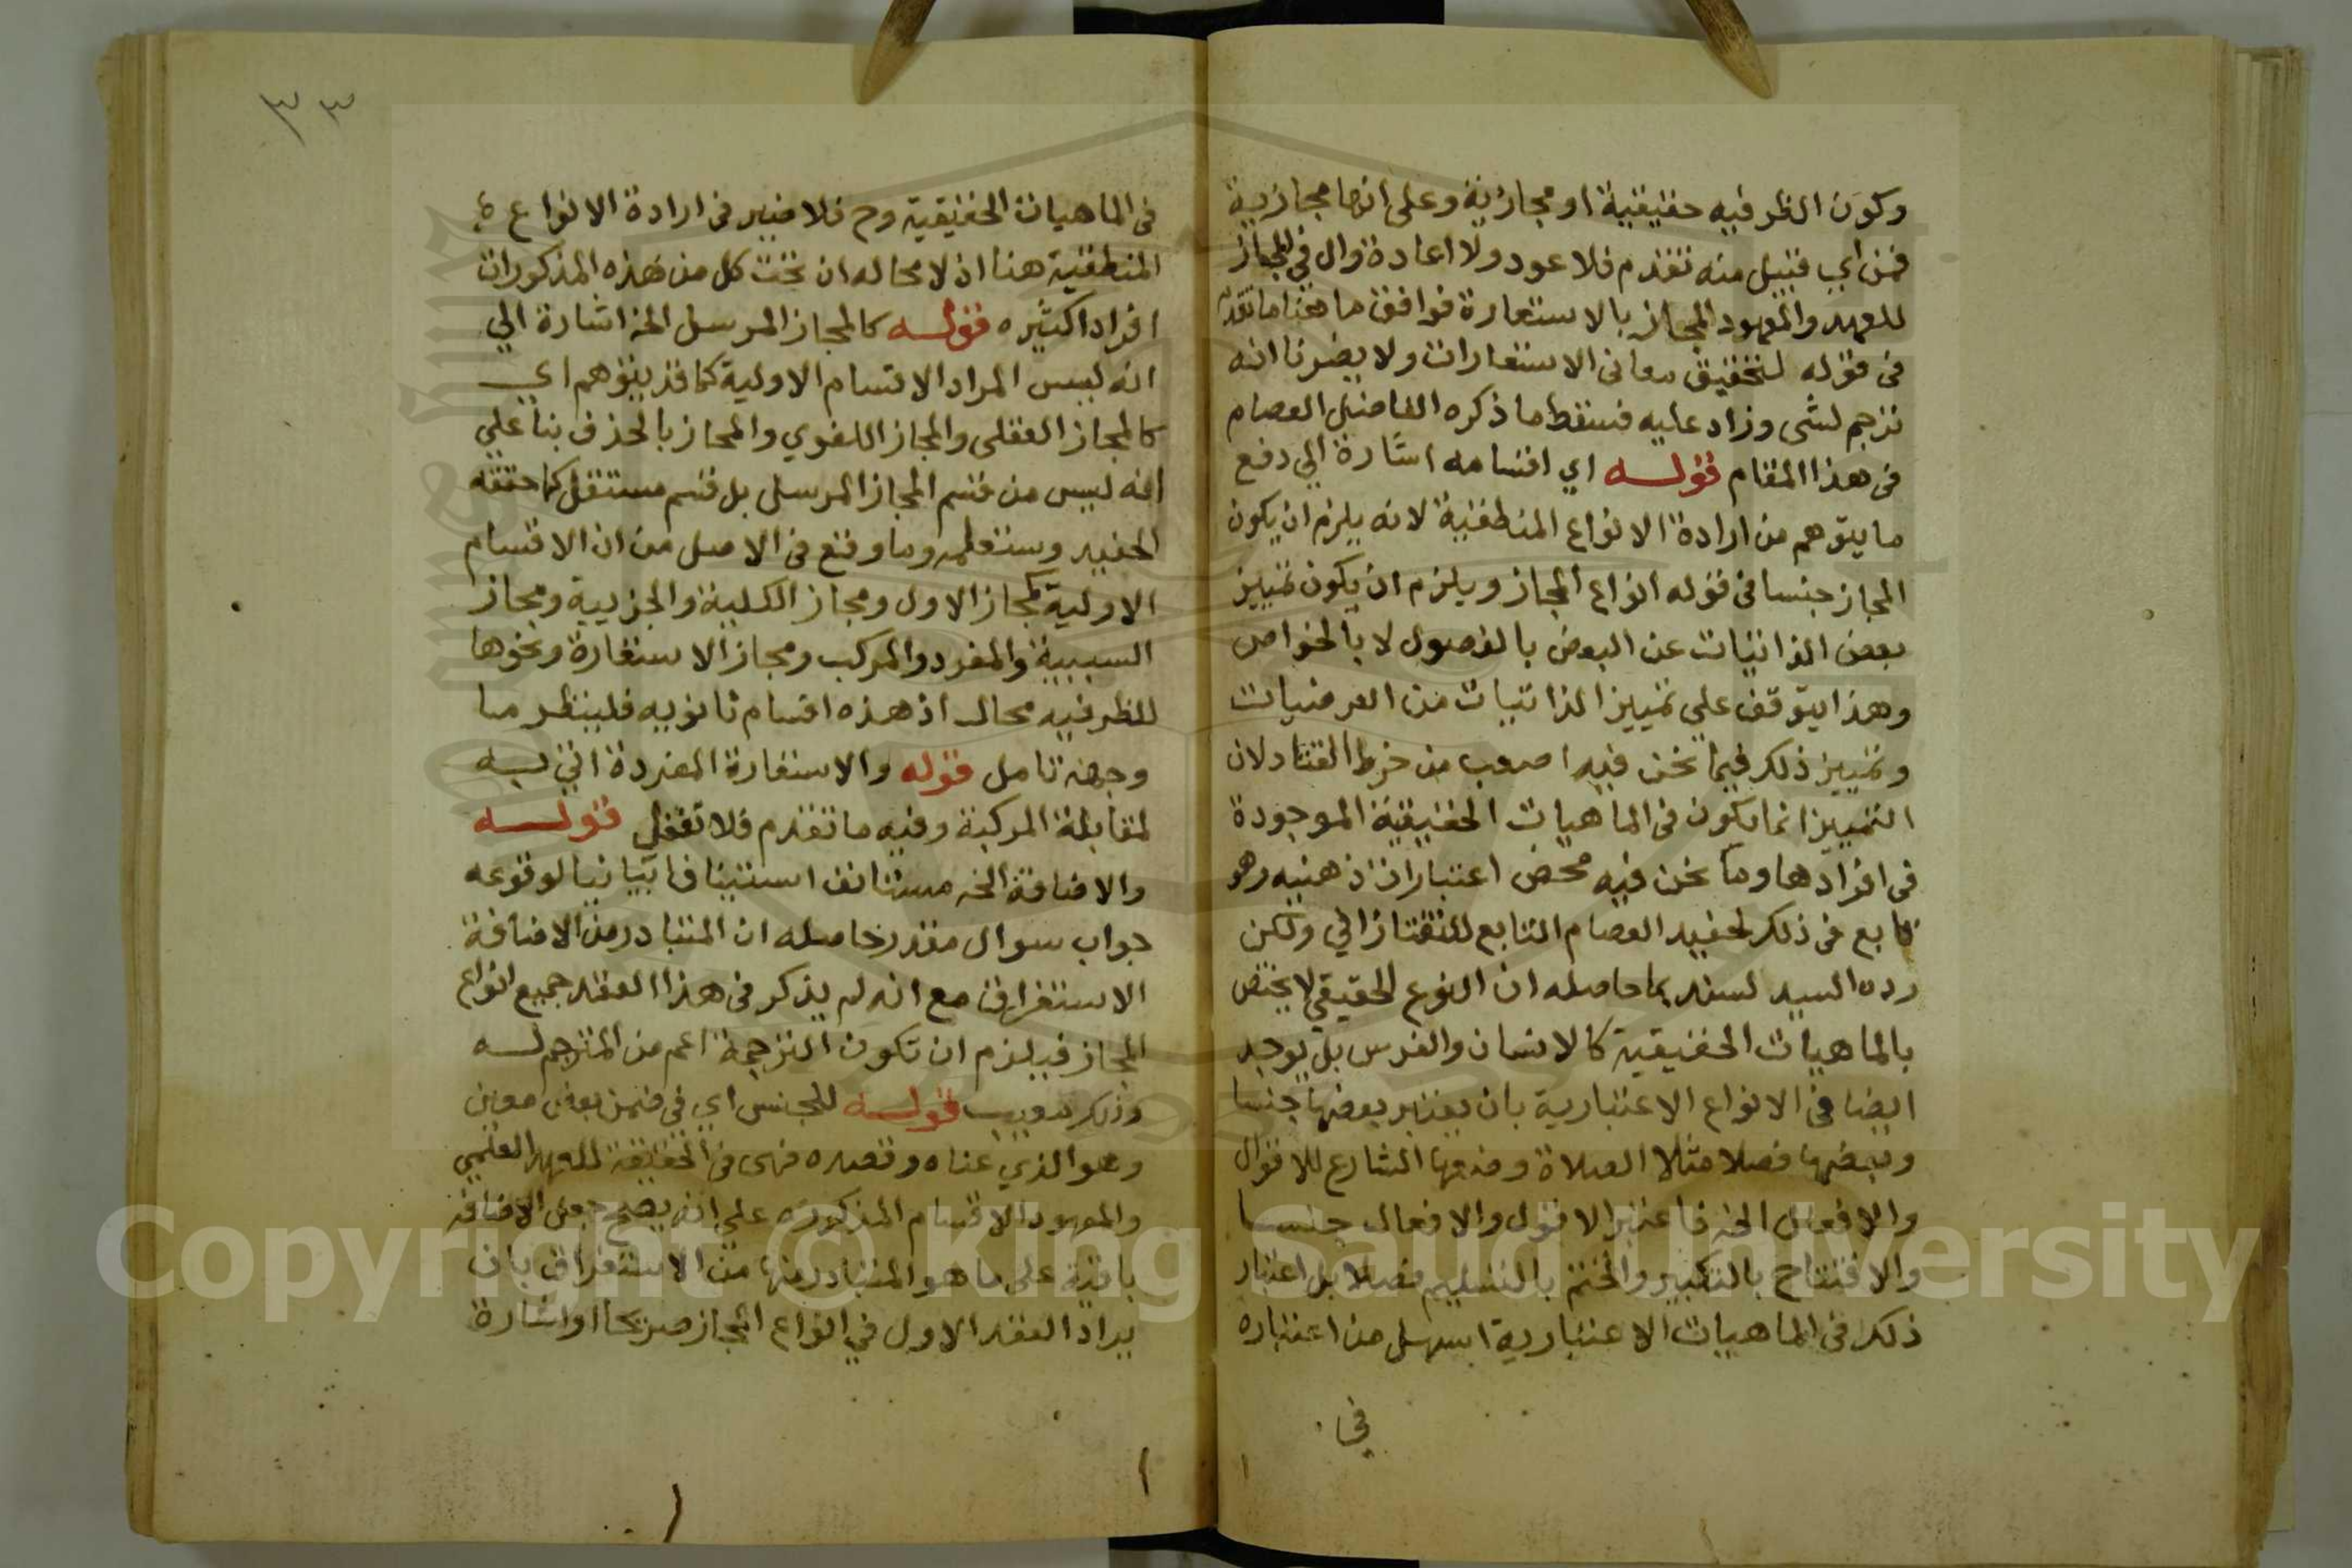 وكون الظرفية حقيقية او مجازية وعلى انها مجازية
فمن اي قبيل منه تقدم فلا عود ولا اعادة وال في المجاز
للعهد والمعهود المجاز بالاستعارة فوافق ما هنا ما تقدم
في قوله لتحقيق معاني الاستعارات ولا يضرنا انه
ترجم لشى وزاد عليه فسقط ما ذكره الفاضل العصام
في هذا المقام قوله اي اقسامه اشارة الي دفع
ما يتوهم من ارادة الانواع المنطقية لانه يلزم ان يكون
المجاز جنسا في قوله انواع المجاز ويلزم ان يكون تمييز
بعض الذاتيات عن البعض بالفصول لا بالخواص
وهذا يتوقف علي تمييز الذاتيات من العرضيات
وتمييز ذلك فيما نحن فيه اصعب من خرط القتاد لان
التمييز انما يكون في الماهيات الحقيقية الموجودة
في افرادها وما نحن فيه محض اعتبارات ذهنيه وهو
تابع في ذلك لحفيد العصام التابع للتفتازاني ولكن
رده السيد لسند بما حاصله ان النوع الحقيقي لا يختص
بالماهيات الحقيقية كالانسان والفرس بل يوجد
ايضا في الانواع الاعتبارية بان يعتبر بعضها جنسا
وبعضها فصلا مثلا الصلاة وضعها الشارع للاقوال
والافعال الخ فاعتبر الاقول والافعال جنسا
والافتتاح بالتكبير والختم بالتسليم فصلا بل اعتبار
ذلك في الماهيات الاعتبارية اسهل من اعتباره
في
٣٣
في الماهيات الحقيقية وح فلا ضير في ارادة الانواع
المنطقية هنا اذ لا محاله ان تحت كل من هذه المذكورات
افرادا كثيره قوله كالمجاز المرسل الخ اشارة الي
انه ليس المراد الاقسام الاولية كما قد يتوهم اي
كالمجاز العقلى والمجاز اللغوي والمجاز بالحذف بنا علي
انه ليس من قسم المجاز المرسل بل قسم مستقل كما حققه
الحفيد وستعلمه وما وقع في الاصل من ان الاقسام
الاولية كمجاز الاول ومجاز الكلية والجزيية ومجاز
السببية والمفرد والمركب ومجاز الاستعارة ونحوها
للظر فيه مجال اذ هذه اقسام ثانويه فلينظر ما
وجهه تامل قوله والاستعارة المفردة اتي به
لمقابلة المركبة وفيه ما تقدم فلا تغفل قوله
والاضافة الخ مستانف استينافا بيانيا لوقوعه
جواب سوال مقدر حاصله ان المتبادر من الاضافة
الاستغراق مع انه لم يذكر في هذا العقد جميع انواع
المجاز فيلزم ان تكون الترجمة اعم من المترجم له
وذلك معيب قوله للجنس اي في ضمن بعض معين
وهو الذي عناه وقصده فهى في الحقيقة للعهد العلمي
والمعهود الاقسام المذكوره علي انه يصح جعل الاضافة
باقية على ما هو المتبادر منها من الاستغراق بان
يراد العقد الاول في انواع المجاز صريحا او اشارة
Copyright © King Saud University